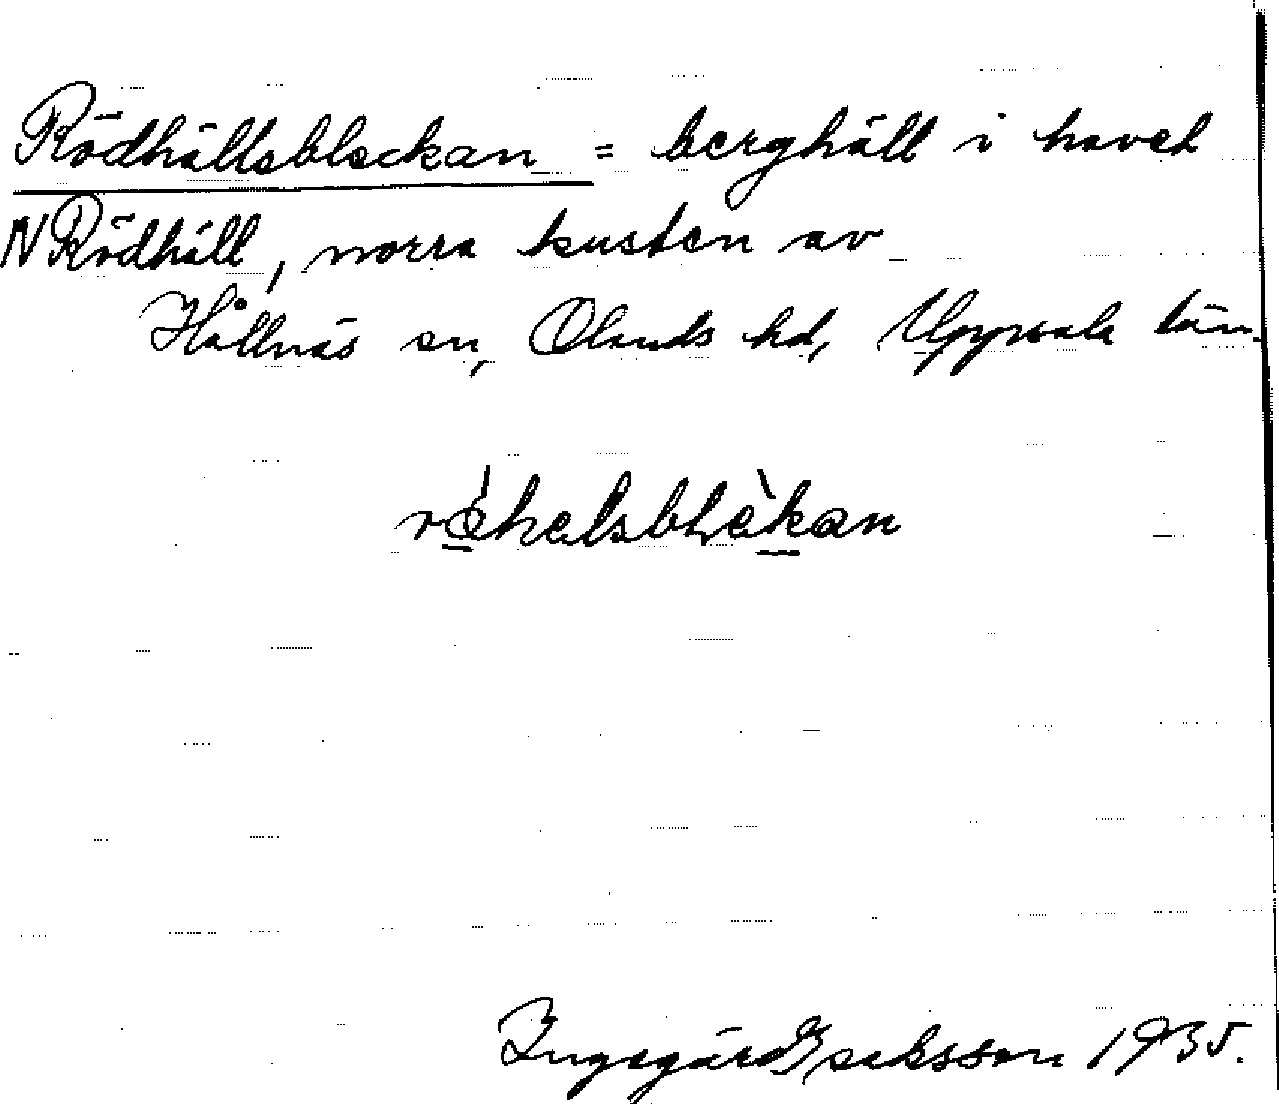 Rödhällsblockan = berghäll i havet
N Rödhäll, norra kusten av
Hållnäs sn, Olands hd, Uppsala län.
Ingegärd Eriksson 1935.